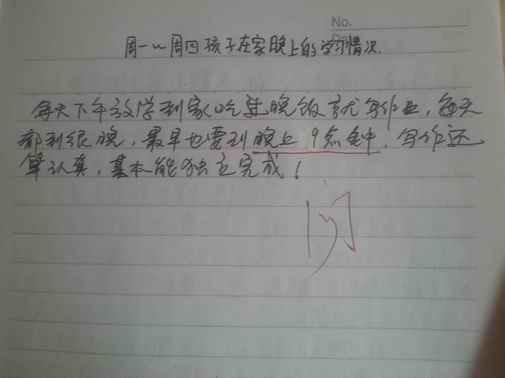 No.
周一~周四孩子在家晚上的学习情况.
每天下午放学到家吃完晚饭就写作业,每天
都到很晚,最早也要到晚上9点钟,写作还
算认真,基本能独立完成!
阅